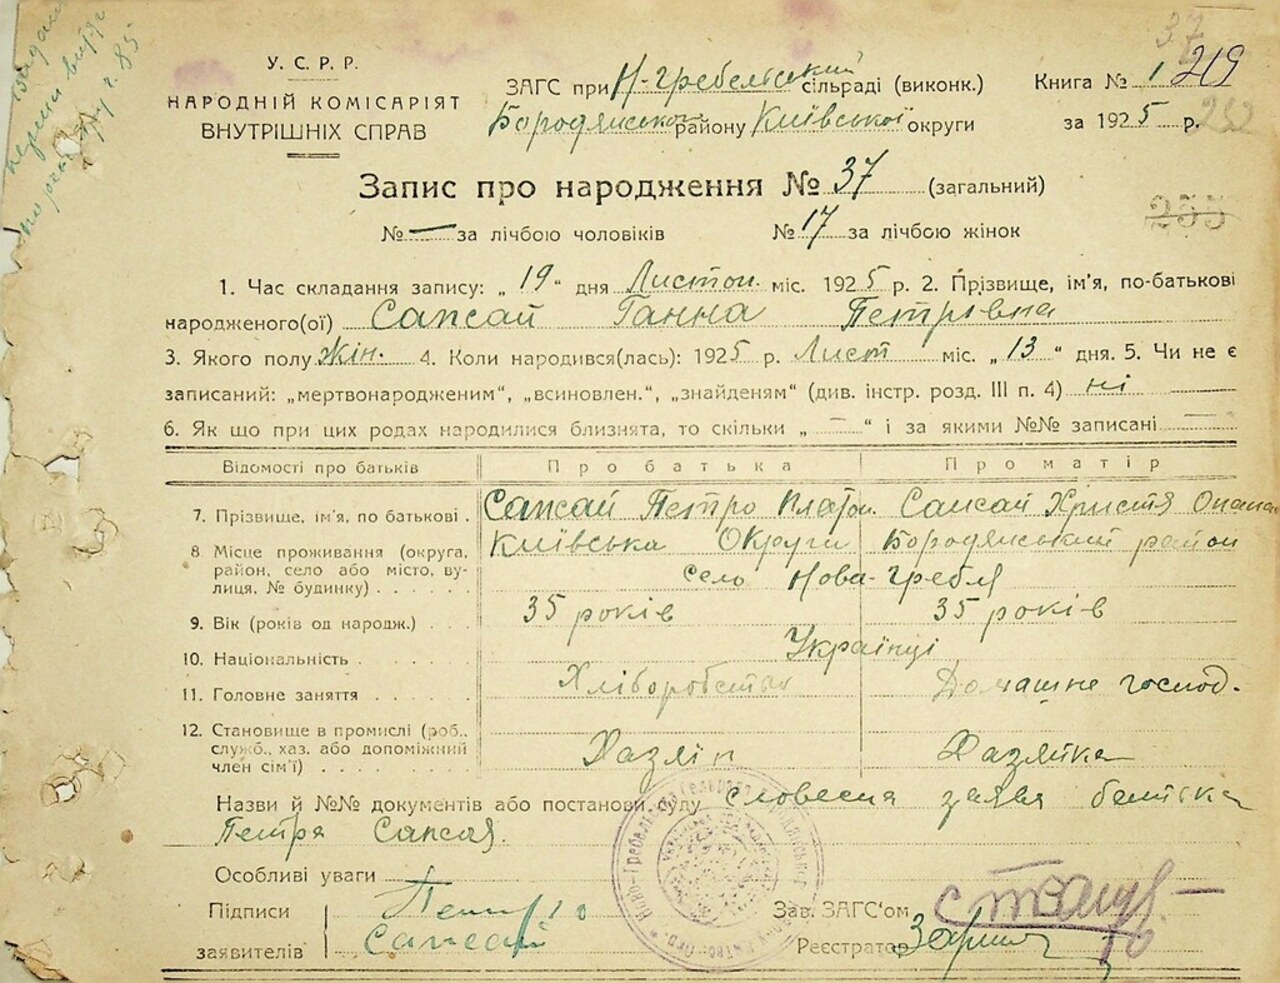 37
У. С. Р. Р.
НАРОДНІЙ КОМІСАРІЯТ
ВНУТРІШНІХ СПРАВ
ЗАГС при Н-Гребельський сільраді (виконк.)
Бородянського району Київської округи
Книга № 1 219
за 1925 р. 252
Запис про народження № 37 (загальний)
255
№ — за лічбою чоловіків № 17 за лічбою жінок
1. Час складання запису: „ 19 “ дня Листоп. міс. 1925 р. 2. Прізвище, ім'я, по-батькові
народженого(ої) Сапсай Ганна Петрівна
3. Якого полу Жін. 4. Коли народився(лась): 1925 р. Лист міс. „ 13 “ дня. 5. Чи не є
записаний: „мертвонародженим“, „всиновлен.“, „знайденям“ (див. інстр. розд. III п. 4) ні
6. Як що при цих родах народилися близнята, то скільки „ — “ і за якими №№ записані —
Відомості про батьків Про батька Про матір
7. Прізвище, ім'я, по батькові . Сапсай Петро Платон. Сапсай Христя
8 Місце проживання (округа, Київська Округи Бородянський район
район, село або місто, ву-
лиця, № будинку) . . . . . . село Нова-Гребля
9. Вік (років од народж.) . . . 35 років 35 років
10. Національність . . . . . . Українці
11. Головне заняття . . . . . . Хліборобство Домашнє господ.
12. Становище в промислі (роб.,
служб., хаз. або допоміжний
член сім'ї) . . . . . . . . Хазяїн Хазяйка
Назви й №№ документів або постанови суду словесна заява батька
Петра Сапсая.
Особливі уваги
Підписи Петро
заявителів Сапсай
Зав. ЗАГС'ом
Реєстратор